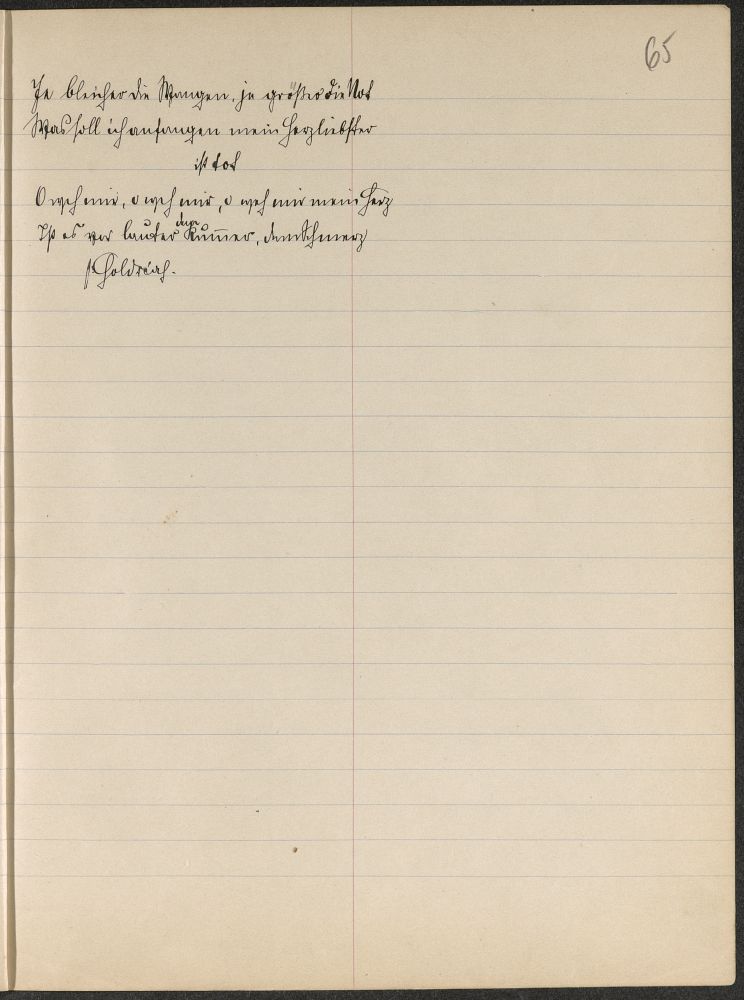 65
Je bleicher die Wangen, je größer die Not
Was soll ich anfangen mein Herzliebster
ist tot
O weh mir, o weh mir, o weh mir mein Herz
Ist es vor lauter Kum̅er, dem Schmerz